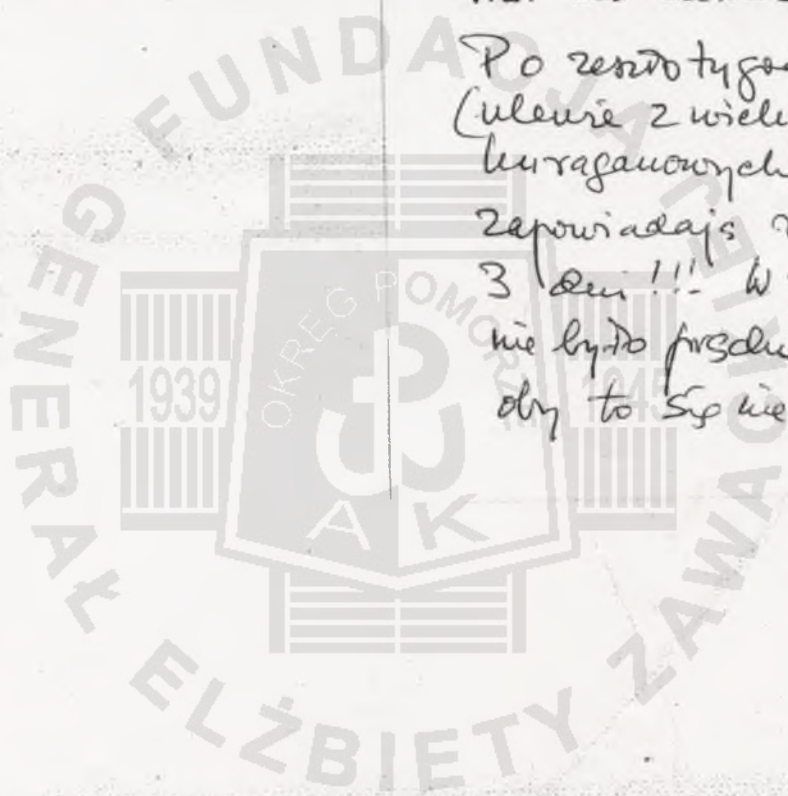 Po zeszłotygod
(ulewie z wielu
huraganowych
zapowiadają
3 dni!!! W
nie było prądu
oby to się nie
FUNDACJA GENERAŁ ELŻBIETY ZAWACKIEJ
OKRĘG POMORZE
1939
1945
AK